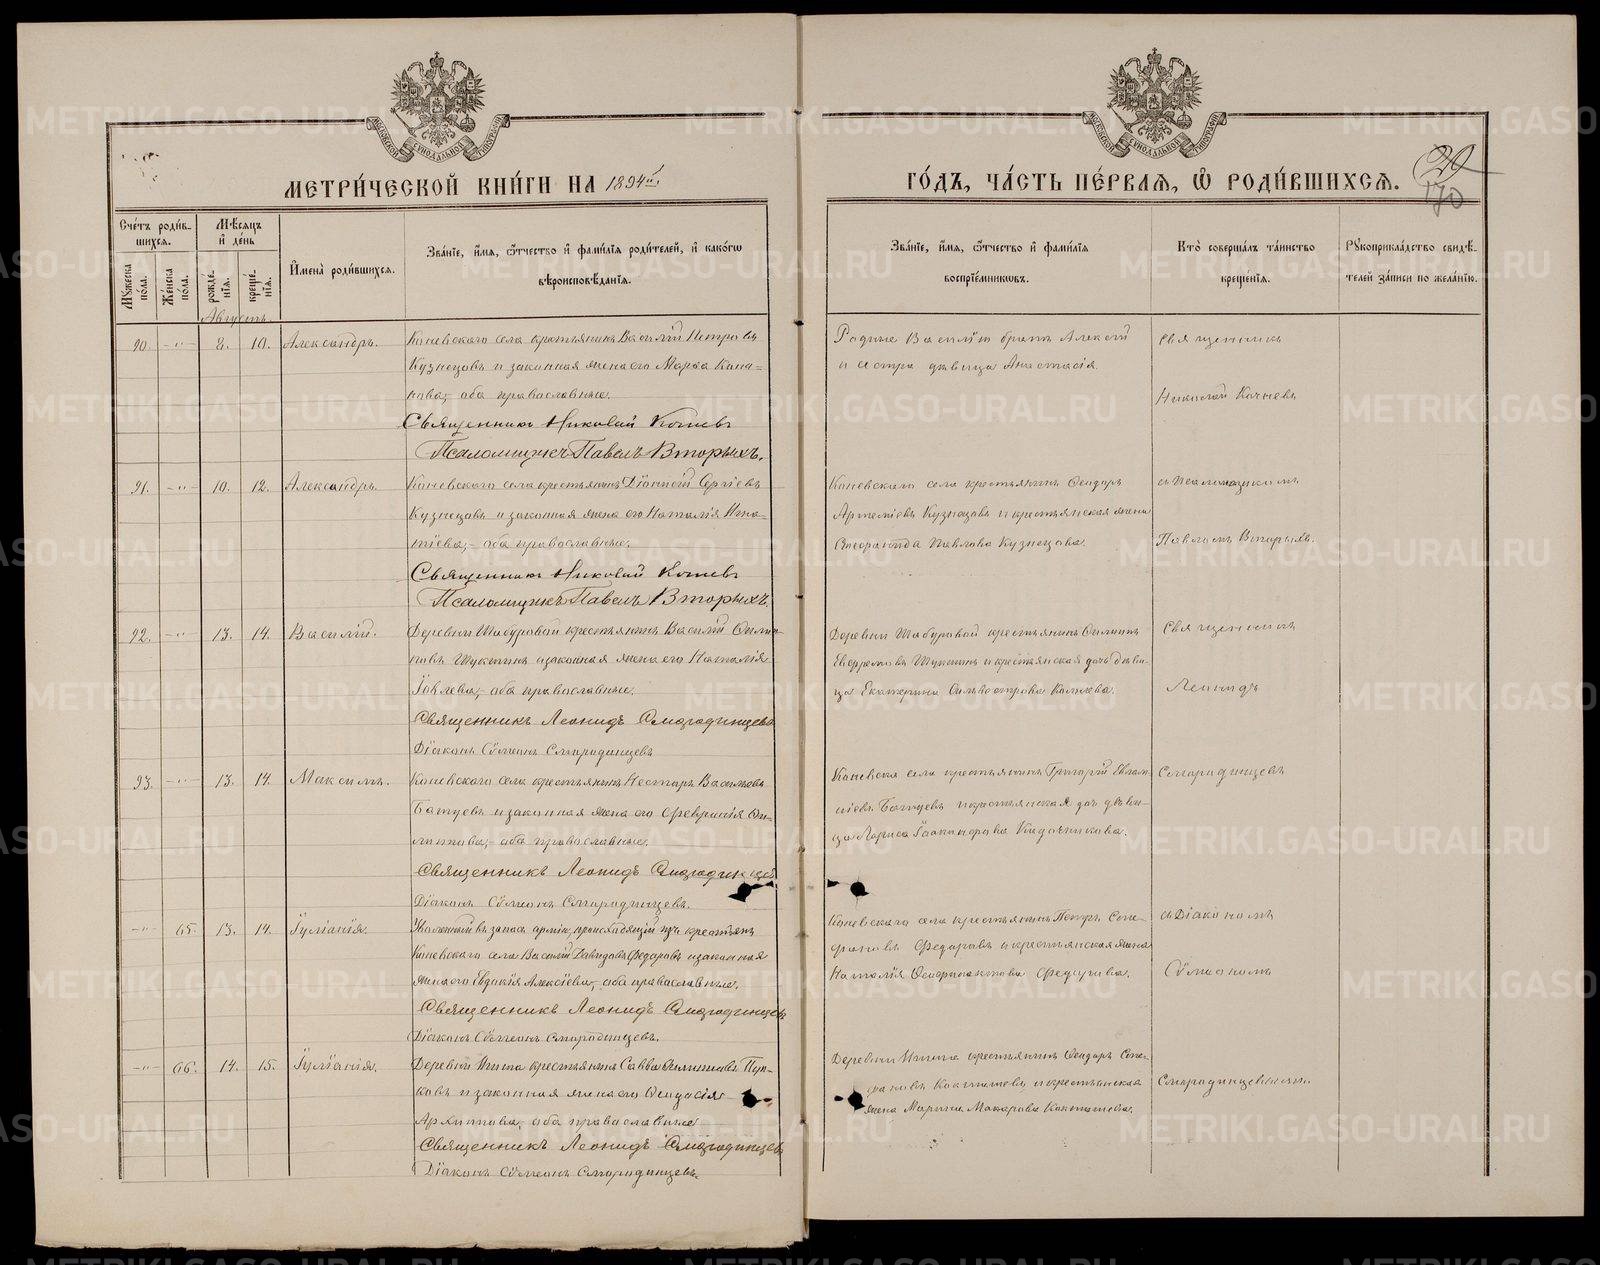 МЕТРИ́ЧЕСКОЙ КНИ́ГИ НА 1894й
ГО́ДЪ, ЧА́СТЬ ПЕ́РВАЯ, Ѽ РОДИ́ВШИХСЯ.
170
Сче́тъ роди́в-
шихся.
Мѣ́сяцъ
и҆ де́нь
Му́жеска по́ла.
Же́нска по́ла.
рожде́нїя.
креще́нїя.
И҆мена̀ роди́вшихся.
Зва́нїе, и҆́мя, ѻ҆́тчество и҆ фами́лїя роди́телей, и҆ како́гѡ
вѣроисповѣ́данїя.
Зва́нїе, и҆́мя, ѻ҆́тчество и҆ фами́лїя
воспрїе́мниковъ.
Кто̀ соверша́лъ та́инство
креще́нїя.
Рꙋкоприкла́дство свидѣ́-
телей за́писи по жела́нїю.
Августъ.
90. -"- 8. 10. Александръ.
Каневскаго села крестьянинъ Василій Петровъ
Кузнецовъ и законная жена его Марѳа
оба православные.
Священникъ Николай Кочневъ
Псаломщикъ Павелъ Вторыхъ.
Родные Василію братъ Алексій
и сестра дѣвица Анастасія.
Священникъ
Николай Кочневъ
91. -"- 10. 12. Александръ.
Каневскаго села крестьянинъ Діонисій Сергіевъ
Кузнецовъ и законная жена его Наталія Игна-
тіева,- оба православные.
Священникъ Николай Кочневъ
Псаломщикъ Павелъ Вторыхъ.
Каневскаго села крестьянинъ Ѳеодоръ
Артеміевъ Кузнецовъ и крестьянская жена
Павлова Кузнецова.
съ Псаломщикомъ
Павломъ Вторыхъ.
92. -"- 13. 14. Василій.
Деревни Шабуровой крестьянинъ Василій Филип-
повъ и законная жена его Наталія
Іовлева,- оба православные.
Священникъ Леонидъ Смородинцевъ
Діаконъ Сѵмеонъ Смородинцевъ
Деревни Шабуровой крестьянинъ Филиппъ
и крестьянская дочь дѣви-
ца Екатерина Сильвестрова
Священникъ
Леонидъ
93. -"- 13. 14. Максимъ.
Каневскаго села крестьянинъ Несторъ Васильевъ
Батуевъ и законная жена его Февронія Фи-
липпова,- оба православные.
Священникъ Леонидъ Смородинцевъ
Діаконъ Сѵмеонъ Смородинцевъ.
Каневскаго села крестьянинъ Григорій
Батуевъ и крестьянская дочь дѣви-
ца Лариса
Смородинцевъ
-"- 65. 13. 14. Іуліанія.
Уволенный въ запасъ арміи, происходящій изъ крестьянъ
Каневскаго села Василій Давидовъ Федоровъ и законная
жена его Евдокія Алексіева,- оба православные.
Священникъ Леонидъ Смородинцевъ
Діаконъ Сѵмеонъ Смородинцевъ.
Каневскаго села крестьянинъ Петръ Сте-
фановъ Федоровъ и крестьянская жена
Наталія Федорова.
съ Діакономъ
Сѵмеономъ
-"- 66. 14. 15. Іуліанія.
Деревни крестьянинъ Савва Филипповъ
и законная жена его Ѳеодосія
Архиппова, оба православные
Священникъ Леонидъ Смородинцевъ
Діаконъ Сѵмеонъ Смородинцевъ.
Деревни крестьянинъ Ѳеодоръ Сте-
фановъ и крестьянская
жена Марина Макарова
Смородинцевымъ.
METRIKI.GASO-URAL.RU